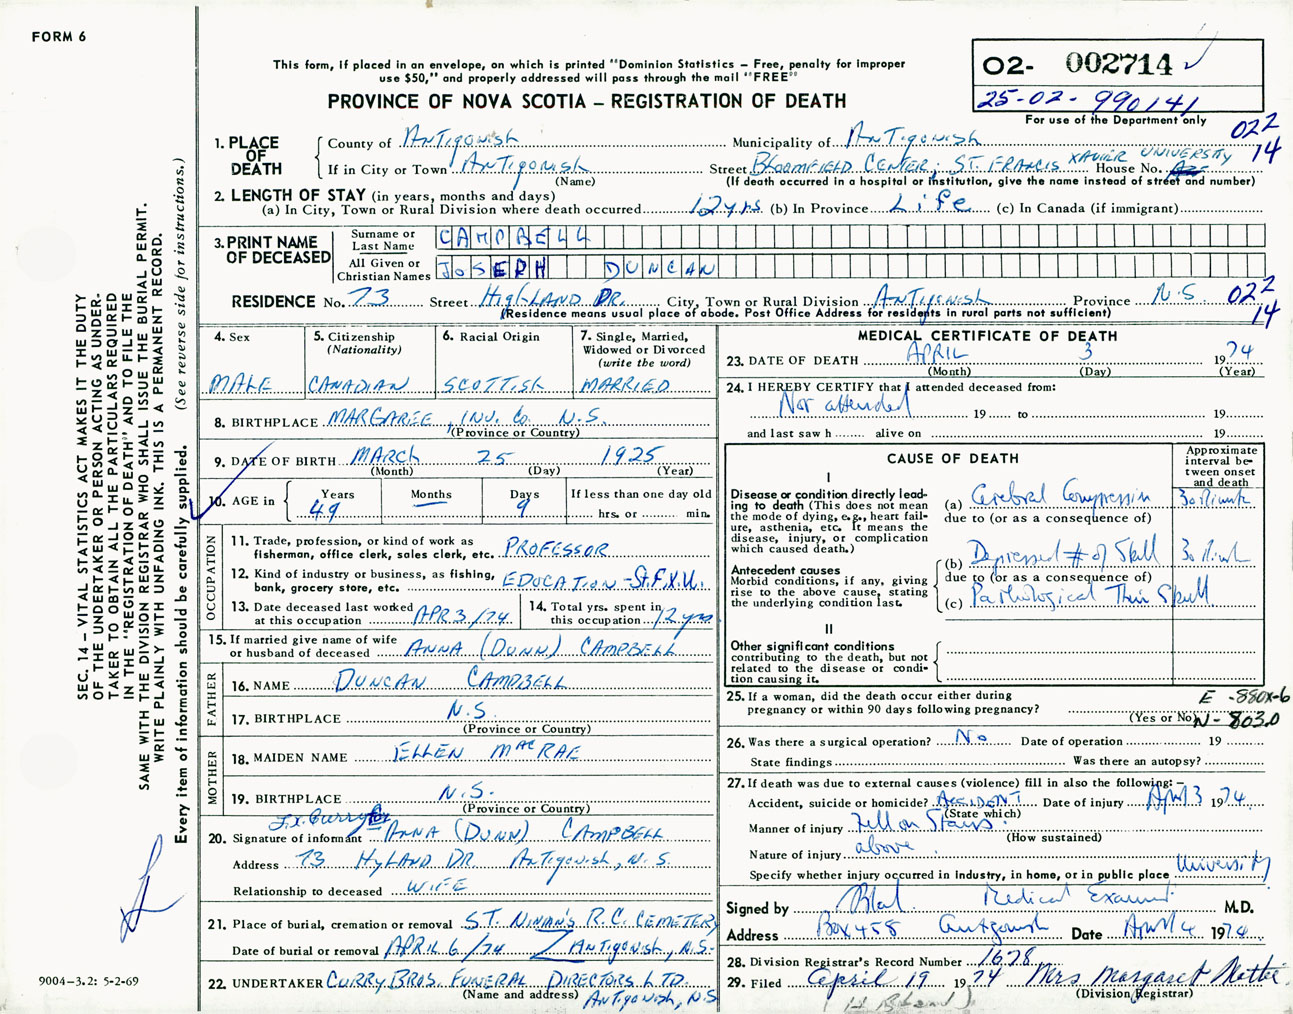 FORM 6
This form, if placed in an envelope, on which is printed "Dominion Statistics – Free, penalty for improper
use $50," and properly addressed will pass through the mail "FREE"
PROVINCE OF NOVA SCOTIA – REGISTRATION OF DEATH
O2- 002714
25-02-990141
For use of the Department only
022
14
1. PLACE OF DEATH
County of Antigonish Municipality of Antigonish
If in City or Town Antigonish Street Bloomfield Center, St. Francis Xavier University House No.
(Name) (If death occurred in a hospital or institution, give the name instead of street and number)
2. LENGTH OF STAY (in years, months and days)
(a) In City, Town or Rural Division where death occurred 12 yrs (b) In Province Life (c) In Canada (if immigrant)
3. PRINT NAME OF DECEASED
Surname or Last Name CAMPBELL
All Given or Christian Names JOSEPH DUNCAN
RESIDENCE No. 73 Street HighLAND DR. City, Town or Rural Division Antigonish Province N.S
022
14
(Residence means usual place of abode. Post Office Address for residents in rural parts not sufficient)
4. Sex
MALE
5. Citizenship (Nationality)
CANADIAN
6. Racial Origin
SCOTTISH
7. Single, Married, Widowed or Divorced (write the word)
MARRIED
8. BIRTHPLACE MARGAREE, INV. Co. N.S.
(Province or Country)
9. DATE OF BIRTH MARCH 25 1925
(Month) (Day) (Year)
10. AGE in Years Months Days If less than one day old
49 — 9 hrs. or min.
OCCUPATION
11. Trade, profession, or kind of work as
fisherman, office clerk, sales clerk, etc. PROFESSOR
12. Kind of industry or business, as fishing,
bank, grocery store, etc. EDUCATION - St.F.X.U.
13. Date deceased last worked
at this occupation APR 3/74
14. Total yrs. spent in
this occupation 12 yrs
15. If married give name of wife
or husband of deceased ANNA (DUNN) CAMPBELL
FATHER
16. NAME DUNCAN CAMPBELL
17. BIRTHPLACE N.S.
(Province or Country)
MOTHER
18. MAIDEN NAME ELLEN MacRAE
19. BIRTHPLACE N.S.
(Province or Country)
20. Signature of informant ANNA (DUNN) CAMPBELL
Address 73 HyLAND DR Antigonish, N.S.
Relationship to deceased WIFE
21. Place of burial, cremation or removal ST. NINIAN'S R.C. CEMETERY
Date of burial or removal APRIL 6/74 ANTIGONISH, N.S.
22. UNDERTAKER CURRY BROS. FUNERAL DIRECTORS LTD
(Name and address) ANTIGONISH, N.S
MEDICAL CERTIFICATE OF DEATH
23. DATE OF DEATH APRIL 3 1974
(Month) (Day) (Year)
24. I HEREBY CERTIFY that I attended deceased from:
Not attended 19 to 19
and last saw h alive on 19
CAUSE OF DEATH
Approximate interval between onset and death
I
Disease or condition directly leading to death (This does not
mean the mode of dying, e.g., heart failure, asthenia, etc. It means the
disease, injury, or complication
which caused death.)
(a) Cerebral Compression 30 Minute
due to (or as a consequence of)
Antecedent causes
Morbid conditions, if any, giving
rise to the above cause, stating
the underlying condition last.
(b) Depressed # of Skull 30 Minute
due to (or as a consequence of)
(c) Pathological Thin Skull
II
Other significant conditions
contributing to the death, but not
related to the disease or condition causing it.
25. If a woman, did the death occur either during
pregnancy or within 90 days following pregnancy?
(Yes or No)
E -880X-6
N-803.0
26. Was there a surgical operation? No Date of operation 19
State findings Was there an autopsy?
27. If death was due to external causes (violence) fill in also the following:–
Accident, suicide or homicide? ACCIDENT Date of injury April 3 1974
(State which)
Manner of injury Fell on Stairs.
(How sustained)
Nature of injury above
Specify whether injury occurred in industry, in home, or in public place University
Signed by Medical Examiner M.D.
Address Box 458 Antigonish Date April 4 1974
28. Division Registrar's Record Number 1628
29. Filed April 19 1974 Mrs Margaret
(Division Registrar)
SEC. 14 – VITAL STATISTICS ACT MAKES IT THE DUTY
OF THE UNDERTAKER OR PERSON ACTING AS UNDER-
TAKER TO OBTAIN ALL THE PARTICULARS REQUIRED
IN THE "REGISTRATION OF DEATH" AND TO FILE THE
SAME WITH THE DIVISION REGISTRAR WHO SHALL ISSUE THE BURIAL PERMIT.
WRITE PLAINLY WITH UNFADING INK. THIS IS A PERMANENT RECORD.
Every item of information should be carefully supplied. (See reverse side for instructions.)
9004-3.2: 5-2-69